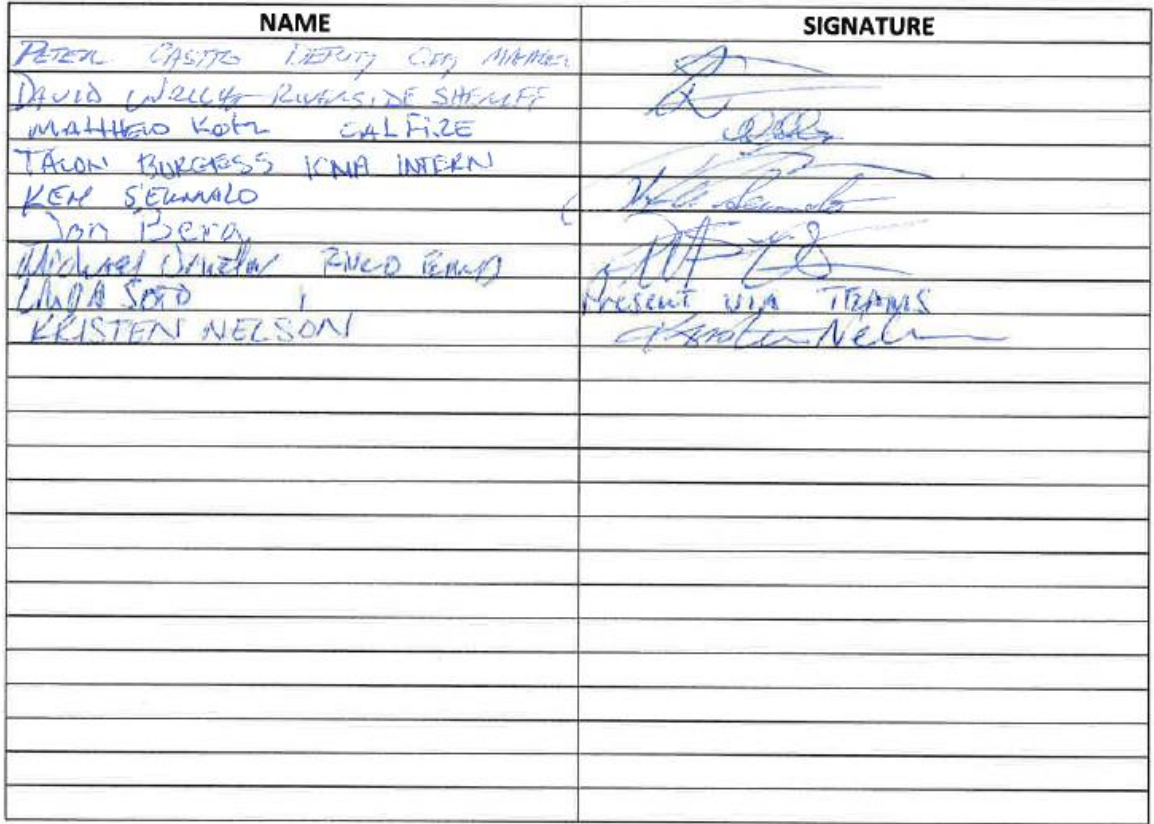 NAME SIGNATURE
PETER CASTRO DEPUTY CITY MANAGER
DAVID WRIGHT RIVERSIDE SHERIFF
MATTHEW Kotz CAL FIRE
TALON BURGESS ICMA INTERN
KEN SERUMALO
Jon Berg
Michael RIVCO
LINDA SOTO Present VIA TEAMS
KRISTEN NELSON Kristen Nel